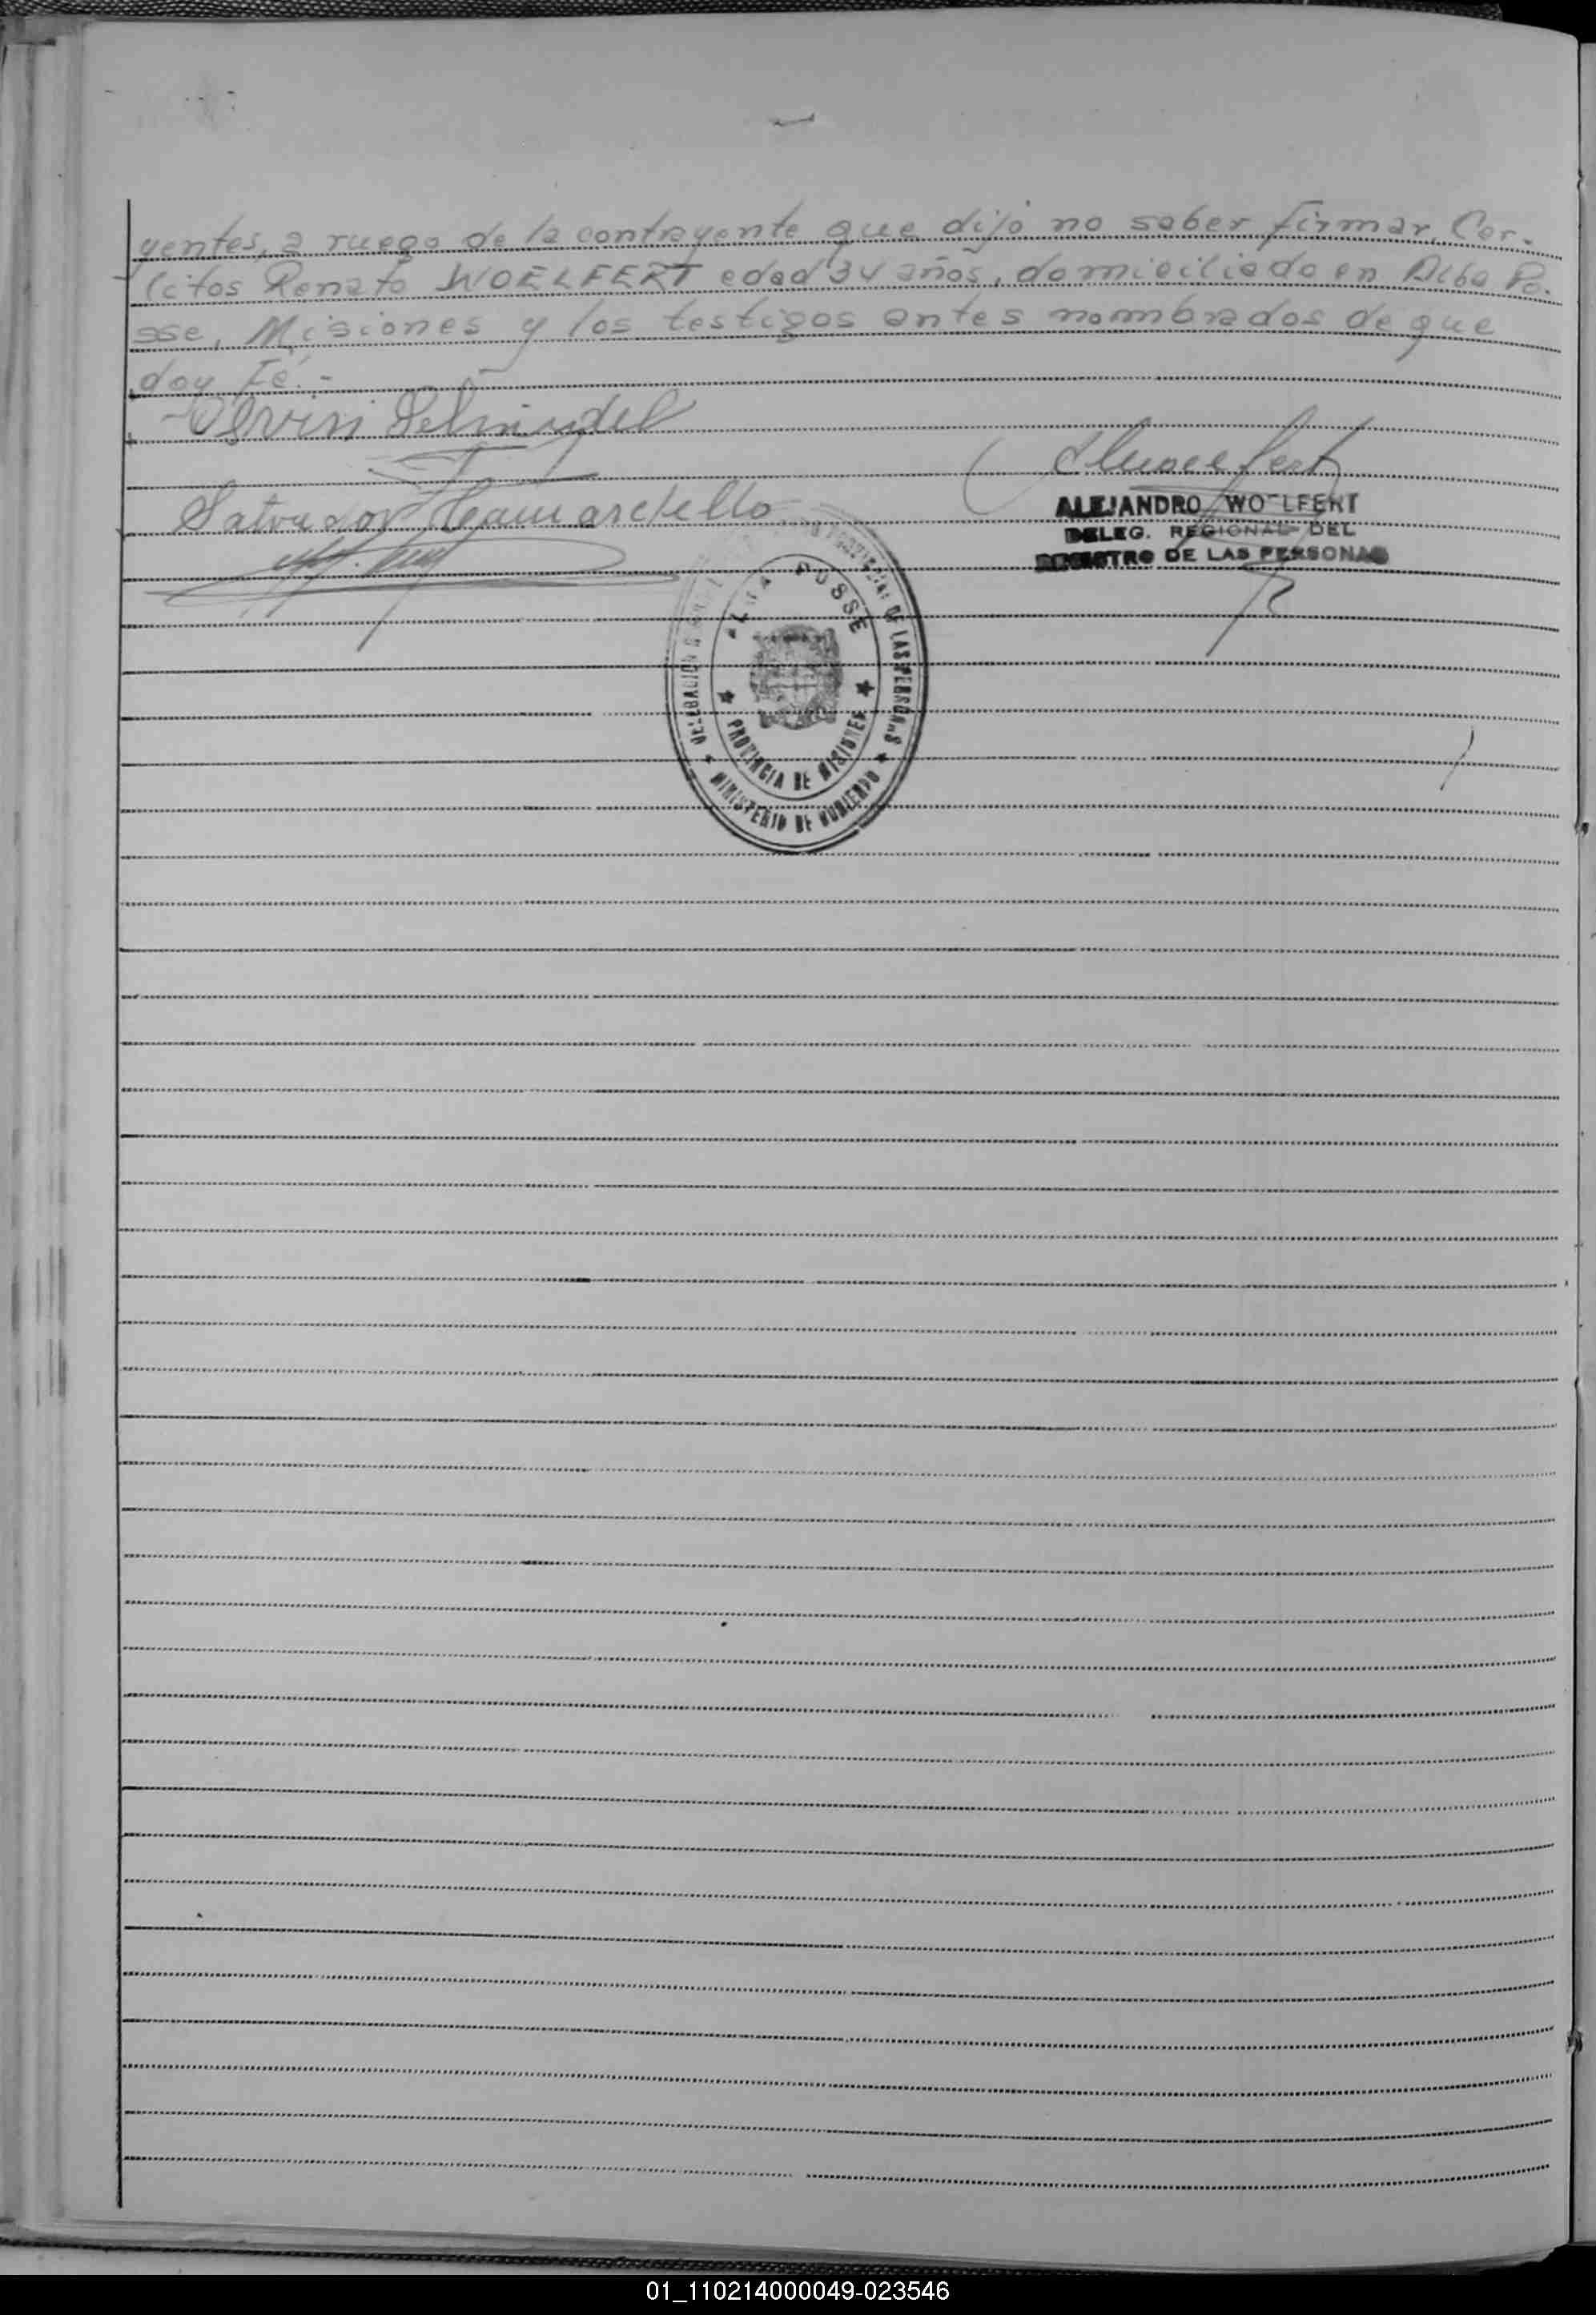 yentes, a ruego de la contrayente que dijo no saber firmar, Car-
litos Renato WOELFERT edad 34 años, domiciliado en Alba Po-
sse, Misiones y los testigos antes nombrados de que
doy Fé.-
Salvador
ALEJANDRO WOELFERT
DELEG. REGIONAL DEL
REGISTRO DE LAS PERSONAS
ALBA POSSE
PROVINCIAL DE LAS PERSONAS
DELEGACION
PROVINCIA DE MISIONES
MINISTERIO DE GOBIERNO
01_110214000049-023546